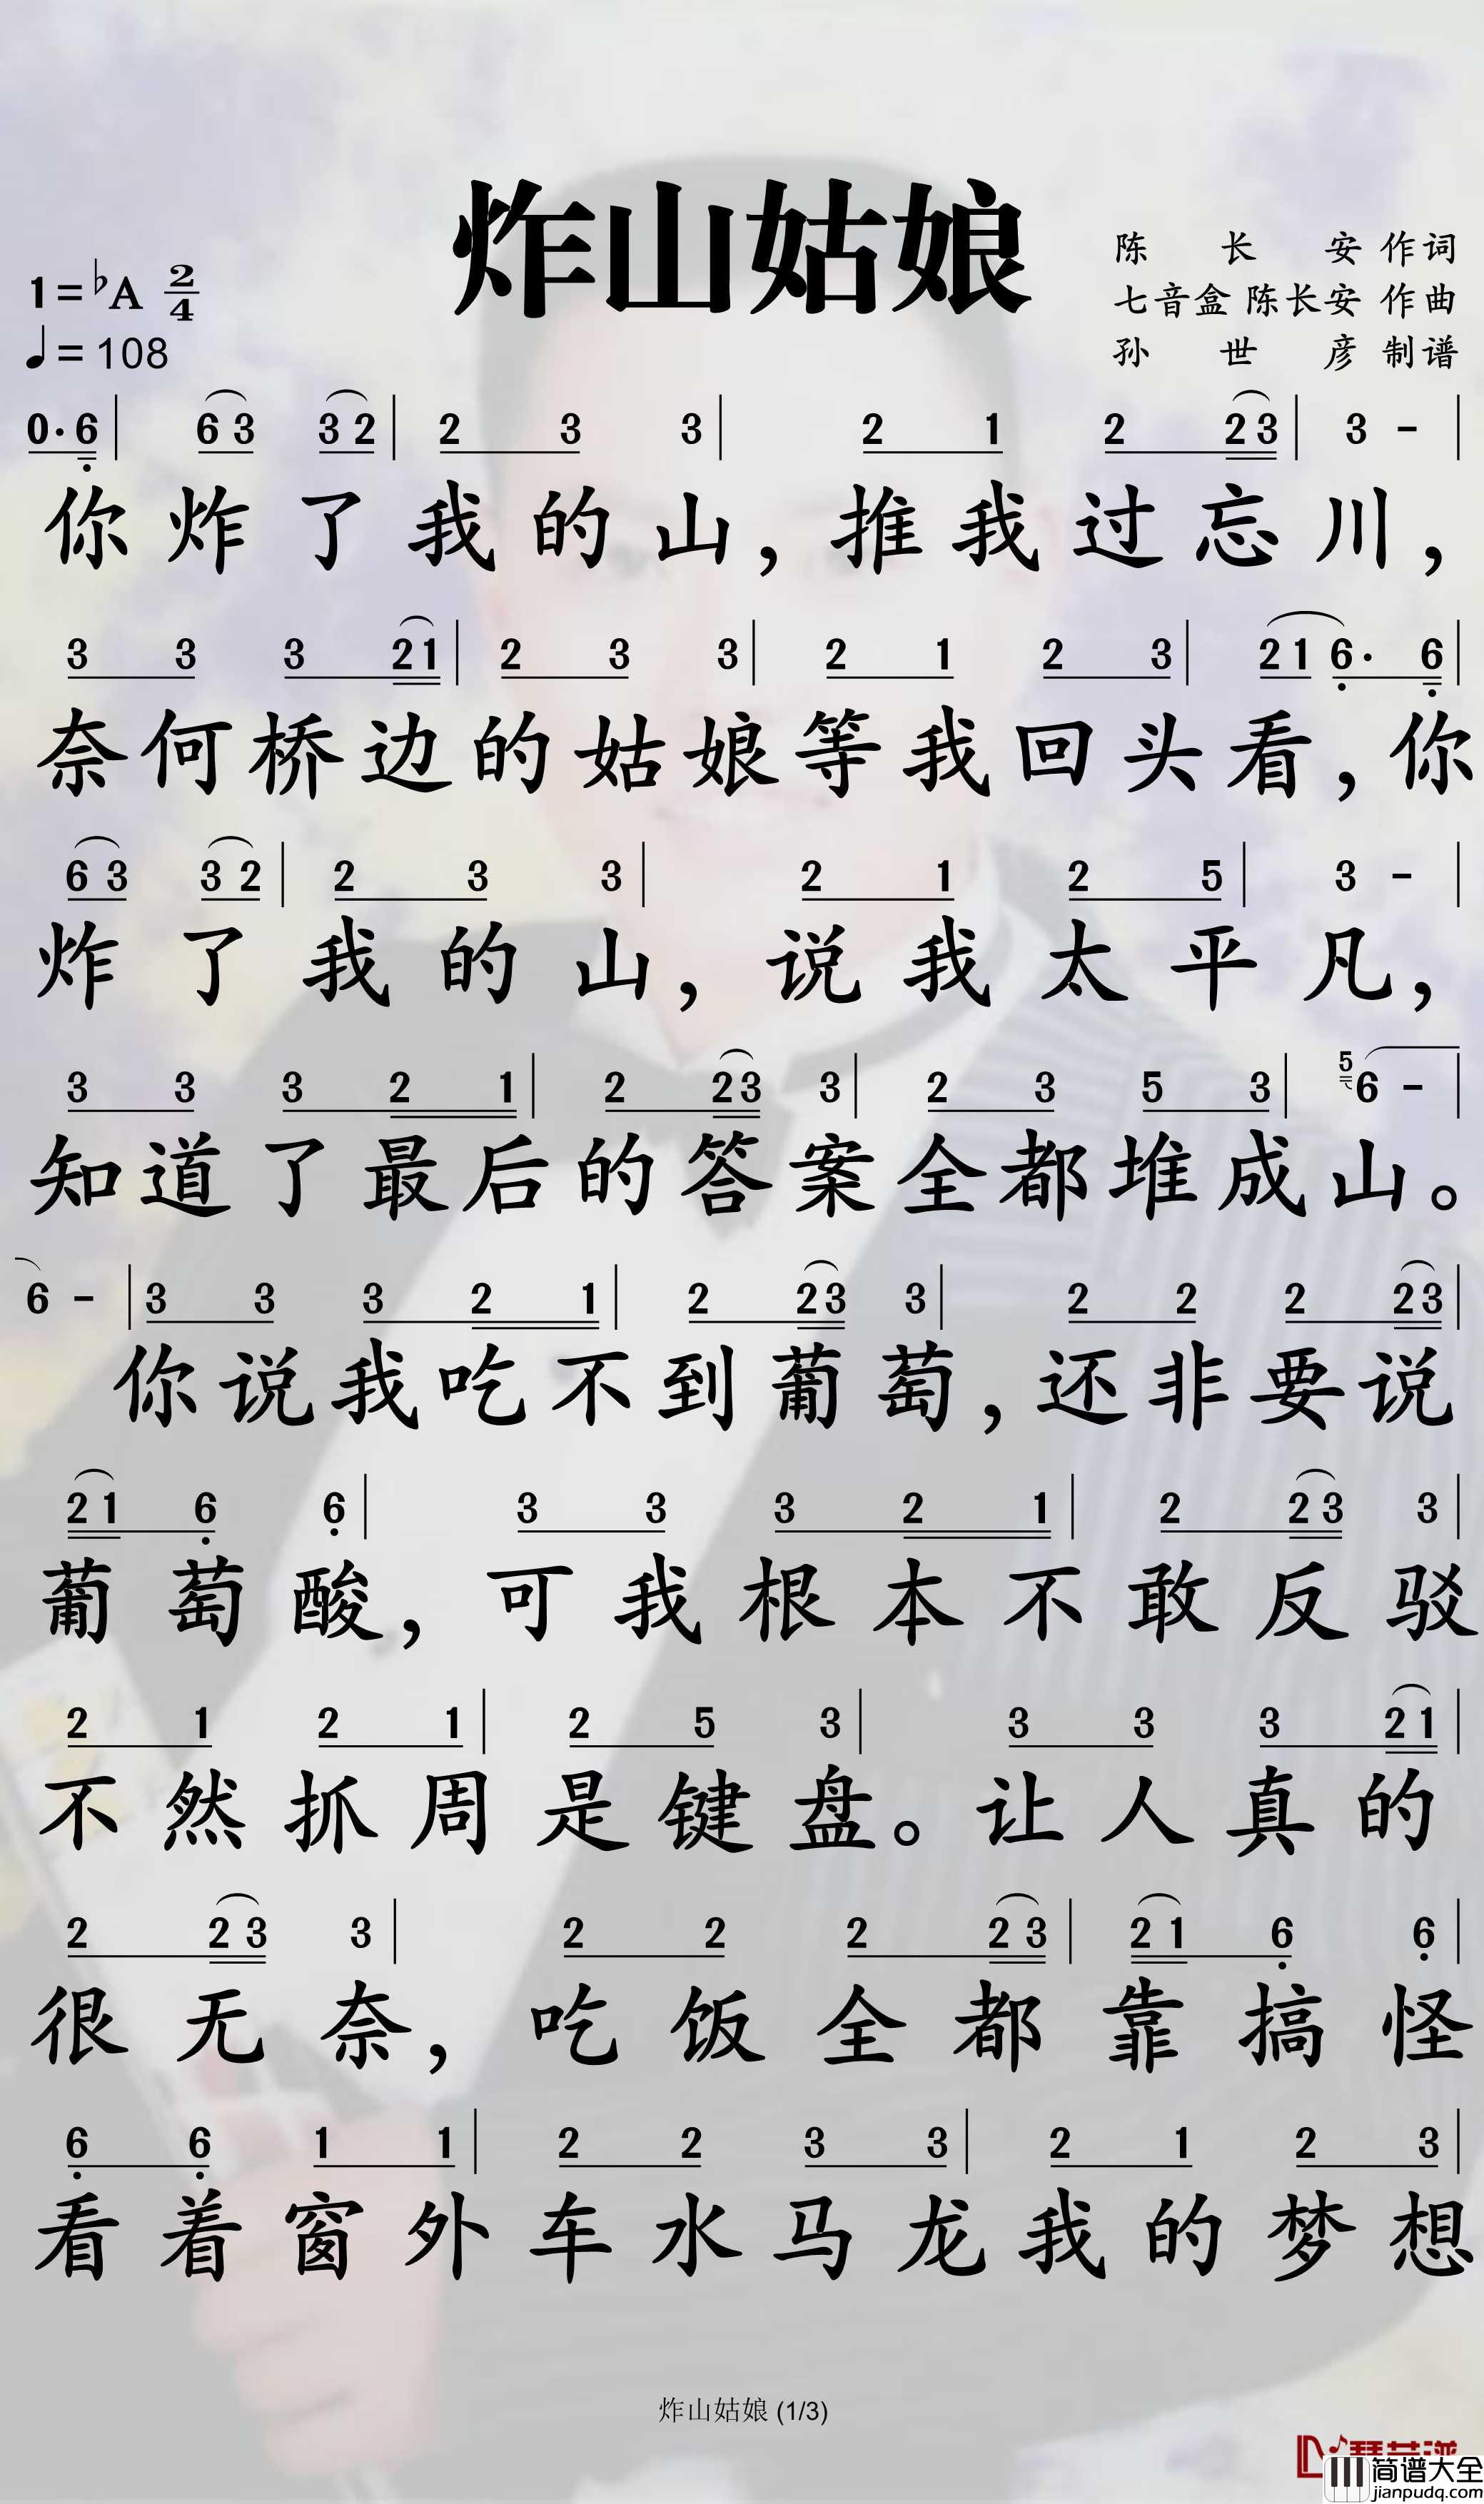 炸山姑娘
1=♭A 2/4
♩=108
陈长安 作词
七音盒 陈长安 作曲
孙世彦 制谱
0· 6 | 6 3 3 2 | 2 3 3 | 2 1 2 2 3 | 3 - |
你炸了我的山，推我过忘川，
3 3 3 2 1 | 2 3 3 | 2 1 2 3 | 2 1 6· 6 |
奈何桥边的姑娘等我回头看，你
6 3 3 2 | 2 3 3 | 2 1 2 5 | 3 - |
炸了我的山，说我太平凡，
3 3 3 2 1 | 2 2 3 3 | 2 3 5 3 | 5 6 - |
知道了最后的答案全都堆成山。
6 - | 3 3 3 2 1 | 2 2 3 3 | 2 2 2 2 3 |
你说我吃不到葡萄，还非要说
2 1 6 6 | 3 3 3 2 1 | 2 2 3 3 |
葡萄酸，可我根本不敢反驳
2 1 2 1 | 2 5 3 | 3 3 3 2 1 |
不然抓周是键盘。让人真的
2 2 3 3 | 2 2 2 2 3 | 2 1 6 6 |
很无奈，吃饭全都靠搞怪
6 6 1 1 | 2 2 3 3 | 2 1 2 3 |
看着窗外车水马龙我的梦想
炸山姑娘 (1/3)
简谱大全
jianpudq.com